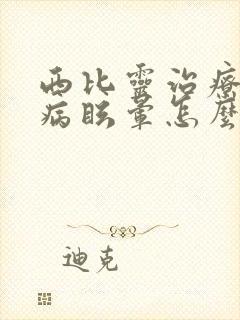 西比靈治療
病眩暈怎麼
迪克